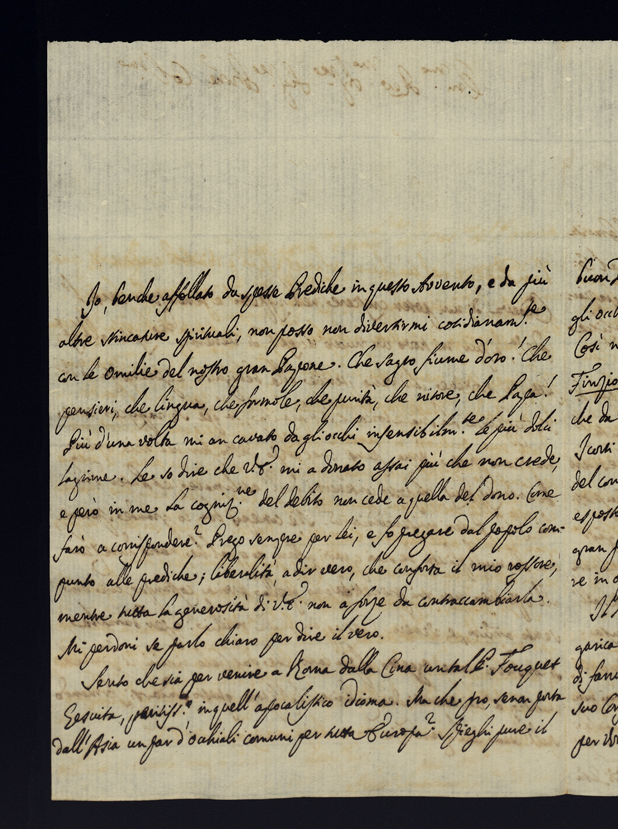 Io, benche affollato da spesse Prediche in questo Avvento, e da più
altre seccature spirituali, non posso non divertirmi cotidianam.te
con le Omilie del nostro gran Pagone. Che sagro fiume d'oro! Che
pensieri, che lingua, che formole, che purità, che nitore, che Paga!
Più d'una volta mi an cavato dagli occhi insensibilm.te le più dolci
lagrime. Le so dire che V.E. mi a donato assai più che non crede,
e però in me la cogniz.ne del debito non cede a quella del dono. Come
farò a corrispondere? Prego sempre per lei, e fo pregare dal popolo com-
punto alle prediche; liberalità, a dir vero, che conforta il mio rossore,
mentre tutta la generosità di V.E. non a forze da contraccambiarla.
Mi perdoni se parlo chiaro per dire il vero.
Sento che sia per venire a Roma dalla Cina un tal P. Fouquet
Gesuita, peritiss.o in quell'apocalistico Idioma. Ma che pro, se non porta
dall'Asia un par d'occhiali comuni per tutta Europa? Spieghi pure il
buon
gli occ
Così n
che da
Scorti
del con
esposto
gran
re in
Il
garica
di
suo Co
per